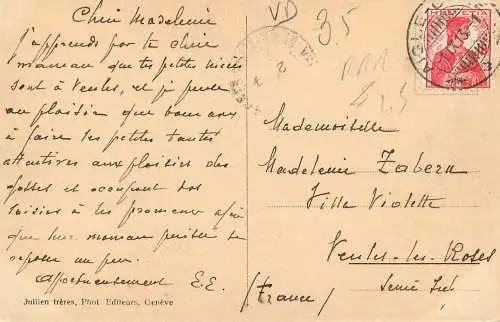 Chère Madeleine
J'apprends par ta chère
maman que tes petites nièces
sont à Veules, et je pense
au plaisir que vous avez
à faire les petites tantes
attentives aux plaisirs des
gosses et occupant vos
loisirs à les promener afin
que leur maman puisse se
reposer un peu.
Affectueusement E.E.
Jullien frères, Phot. Editeurs, Genève
VD
35
HELVETIA
AIGLE
Mademoiselle
Madeleine Zabern
Villa Violette
Veules-les-Roses
Seine Inf.
(France)